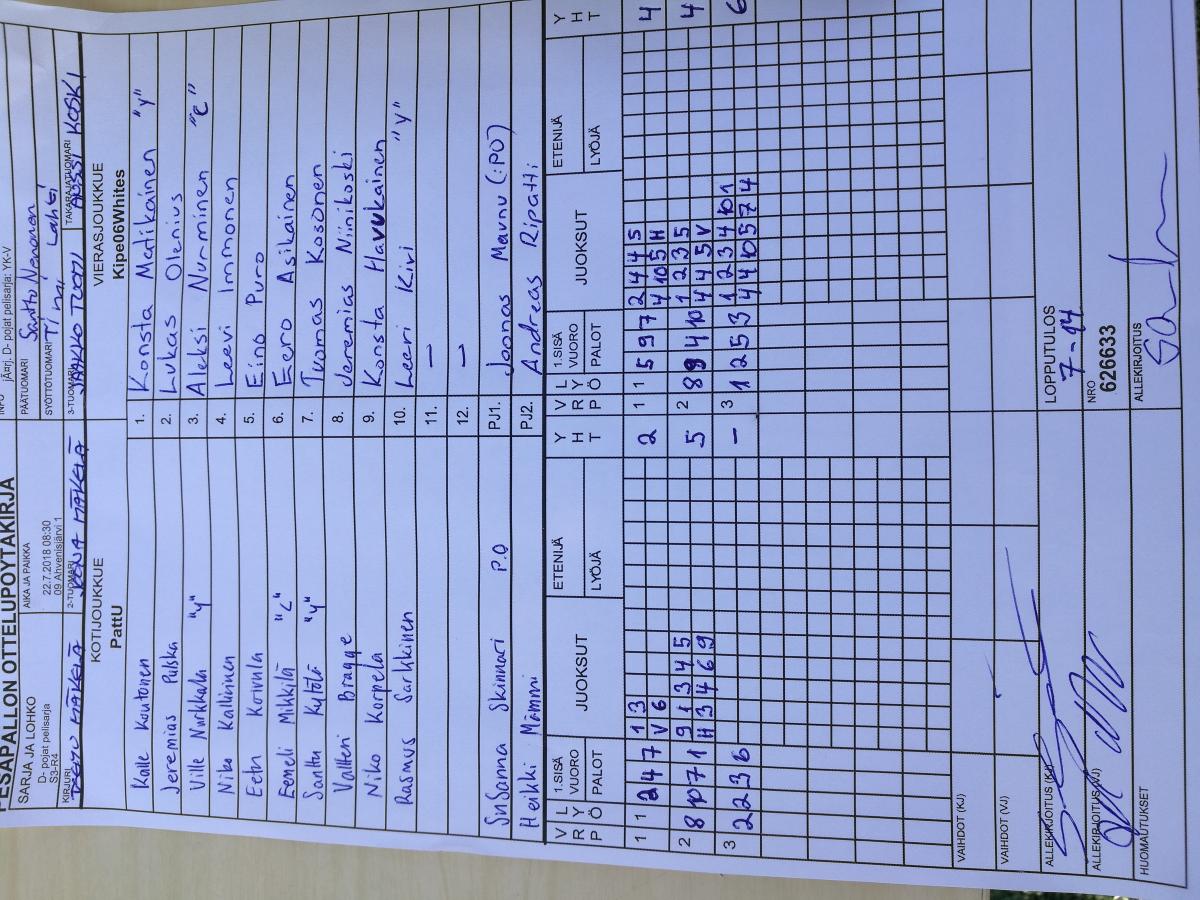 PESÄPALLON OTTELUPÖYTÄKIRJA
SARJA JA LOHKO
D- pojat pelisarja
S3-R4
AIKA JA PAIKKA
22.7.2018 08:30
09 Ahvenisjärvi 1
INFO
D- pojat pelisarja: YK-V
PÄÄTUOMARI Santtu Nenonen
SYÖTTÖTUOMARI Timi Lahti
KIRJURI MÄKELÄ
2-TUOMARI MÄKELÄ
3-TUOMARI JAAKKO TUOMI
TAKARAJATUOMARI JUSSI KOSKI
KOTIJOUKKUE
Pattu
VIERASJOUKKUE
Kipe06Whites
Kalle Koutonen 1. Konsta Matikainen "y"
Jeremias Pulska 2. Lukas Olenius
Ville Nurkkala "y" 3. Aleksi Nurminen "c"
Niko Kallinen 4. Leevi Immonen
Eetu Koivula 5. Eino Puro
Eemeli Mikkilä "c" 6. Eero Asikainen
Santtu Kytölä "y" 7. Tuomas Kosonen
Valtteri Bragge 8. Jeremias Niinikoski
Niko Korpela 9. Konsta Havukainen
Rasmus Sarkkinen 10. Leeri Kivi "y"
11. —
12. —
Susanna Skinnari P.O PJ1. Joonas Maunu (:PO)
Heikki Mämmi PJ2. Andreas Ripatti
V R P L Y Ö 1.SISÄ VUORO PALOT JUOKSUT ETENIJÄ LYÖJÄ Y H T V R P L Y Ö 1.SISÄ VUORO PALOT JUOKSUT ETENIJÄ LYÖJÄ Y H T
1 1 2 4 7 1 3 2 1 1 5 9 7 2 4 4 5 4
V 6 4 10 5 H
2 8 10 7 1 9 1 3 4 5 5 2 8 9 4 10 1 2 3 5 4
H 3 4 6 9 4 4 5 V
3 2 2 3 6 - 3 1 2 5 3 1 2 3 4 10 1 6
4 4 10 5 7 4
VAIHDOT (KJ)
VAIHDOT (VJ)
ALLEKIRJOITUS (KJ)
LOPPUTULOS
7-14
ALLEKIRJOITUS (VJ)
NRO
626633
HUOMAUTUKSET
ALLEKIRJOITUS